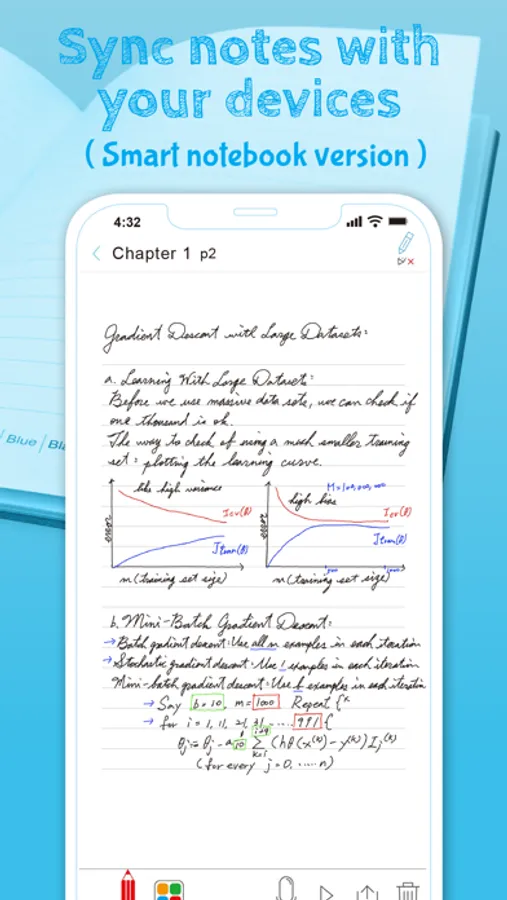 Sync notes with
your devices
( Smart notebook version )
4:32
Chapter 1 p2
Gradient Descent with Large Datasets:
a. Learning With Large Datasets:
Before we use massive data sets, we can check if
one thousand is ok.
The way to check of using a much smaller training
set: plotting the learning curve.
Blue
like high variance
Jcv(θ)
Jtrain(θ)
m (training set size)
high bias
M=100,000,000
Jcv(θ)
Jtrain(θ)
m (training set size)
b. Mini-Batch Gradient Descent:
→ Batch gradient descent: Use all m examples in each iteration
→ Stochastic gradient descent: Use 1 examples in each iteration
Mini-batch gradient descent: Use b examples in each iteration
→ Say b=10, m=1000 Repeat {
→ for i = 1, 11, 21, 31, ..... 991 {
(for every j=0, .....n)